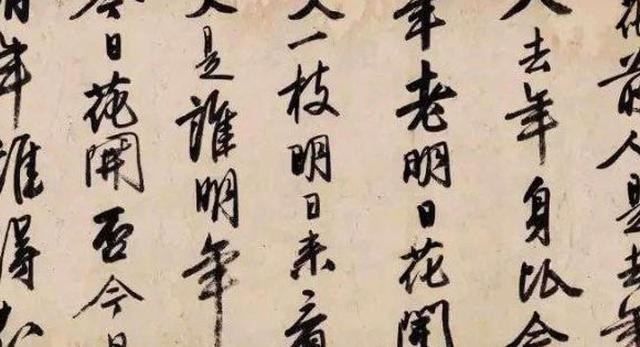 花前人是去年
去年身比今
年老明日花開
又一枝明日来看
是誰明年
今日花開否今日
年誰得